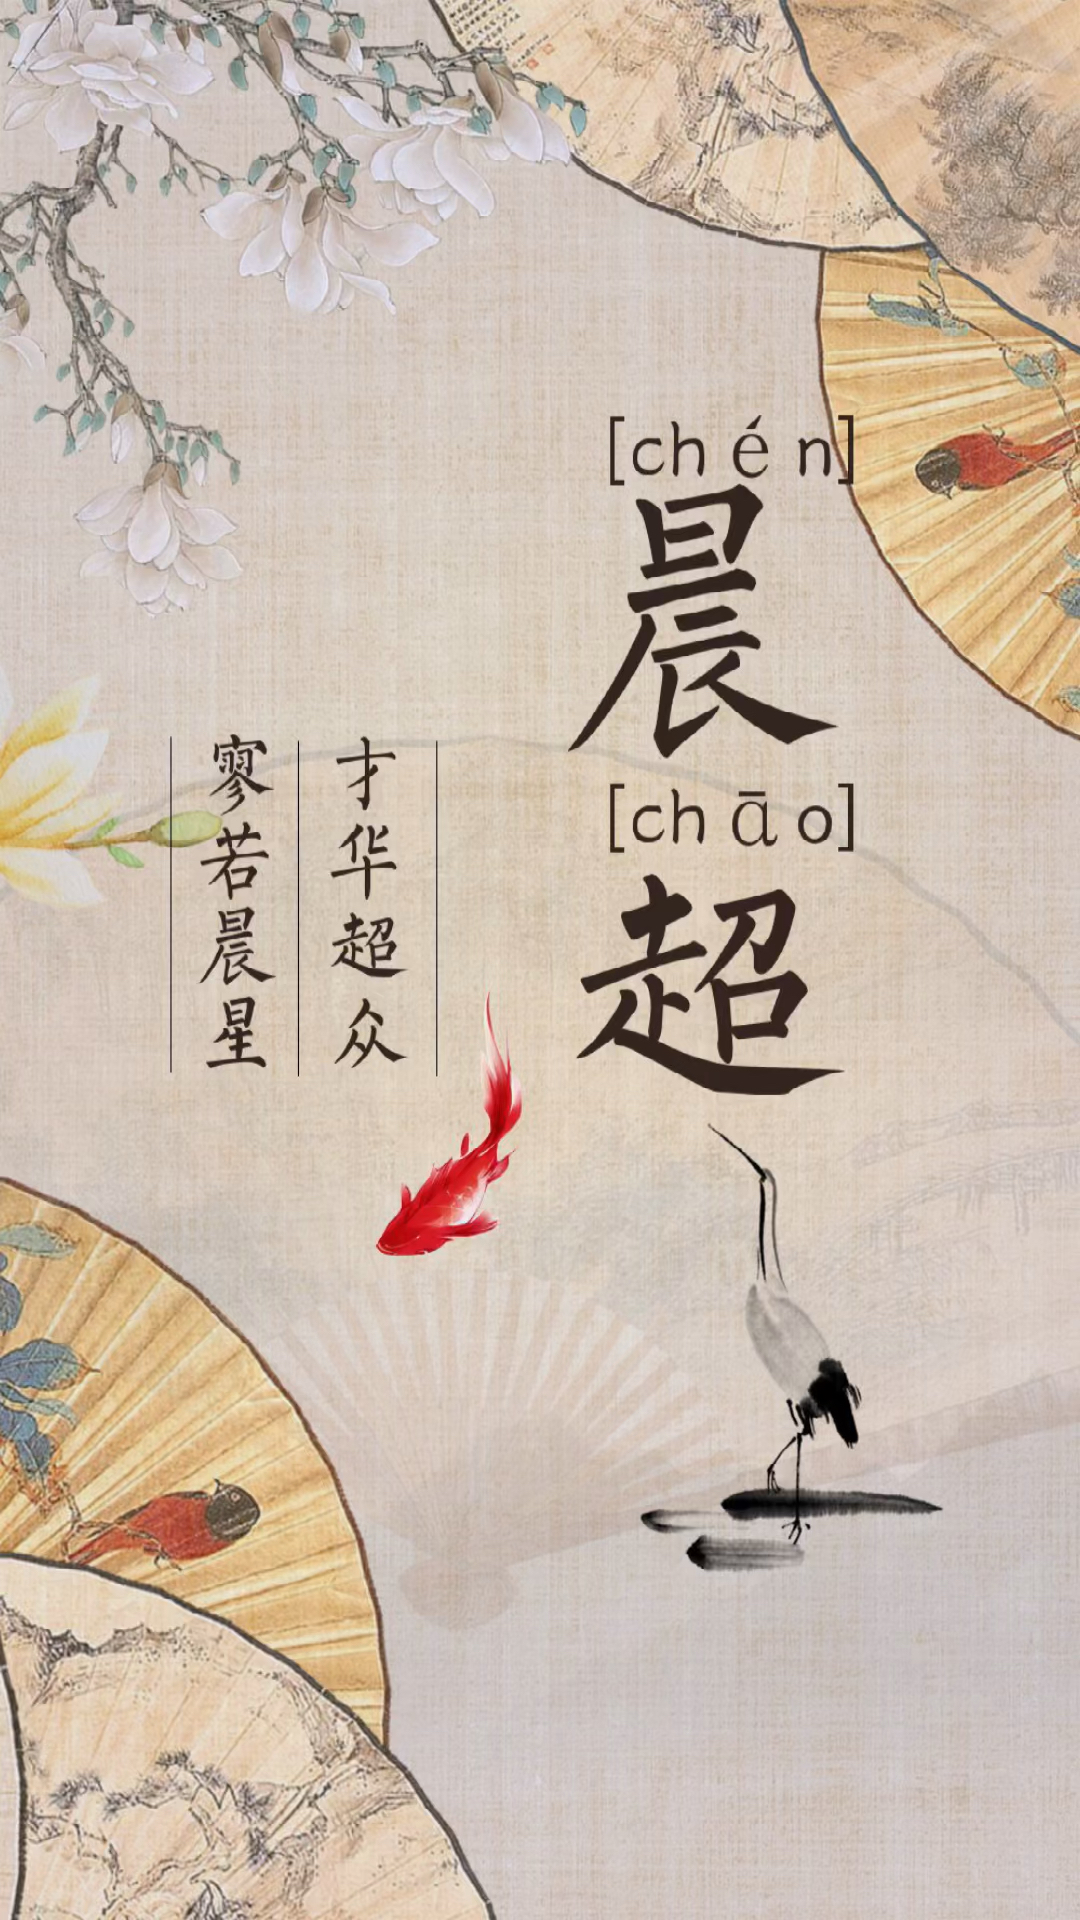 [chén]
晨
[chāo]
超
才华超众
寥若晨星